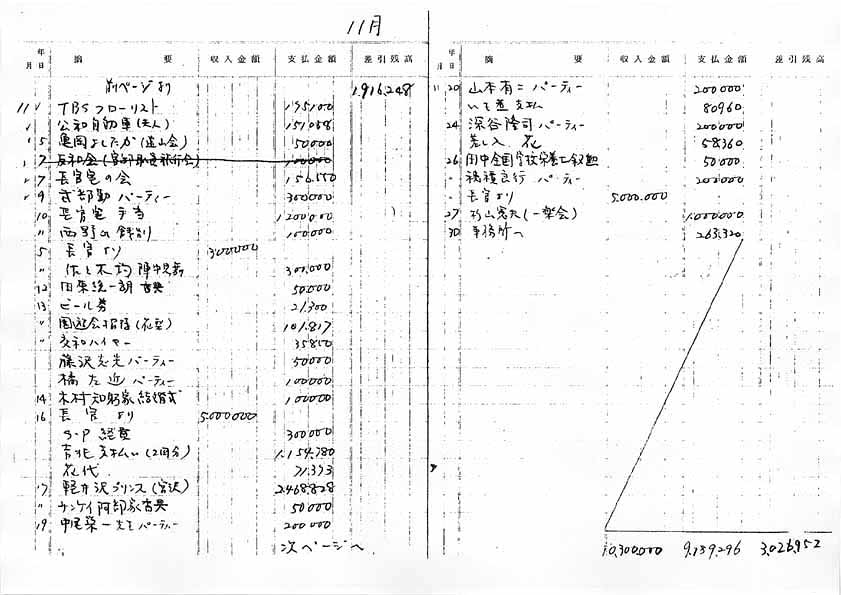 11月
年 月 日 摘 要 収入金額 支払金額 差引残高
前ページより 1,916,248
11 TBSフローリスト 195,100
公和自動車(法人)
5 亀岡よしたか 50000
7 長官宅の会 156,550
9 パーティー 300000
10 長官宅 手当 1,200,000
〃 西野の餞別 100000
5 長官より 3,000,000
〃 佐々木均 300,000
12 50000
13 ビール券 21,300
〃 園遊会 101,817
〃 交和ハイヤー
藤沢志光パーティー 50000
橘左近パーティー 100000
14 木村知躬家結婚式 100000
16 長官より 5,000,000
S-P経費 300000
支払い(2回分) 1,154,780
花代
17 軽井沢プリンス(宮沢) 2,468,828
〃 サンケイ阿部家 50000
19 中尾栄一先生パーティー 200000
次ページへ
年 月 日 摘 要 収入金額 支払金額 差引残高
11 20 山本有二 パーティー 200000
80960
24 深谷隆司 パーティー 200000
差し入 花 58360
26 田中全国学校栄養士 50000
〃 穂積良行 パーティー 200000
〃 長官より 5,000,000
27 杉山憲夫(一楽会) 1,000,000
30 事務所へ 263,320
10,300,000 9,139,296 3,026,952